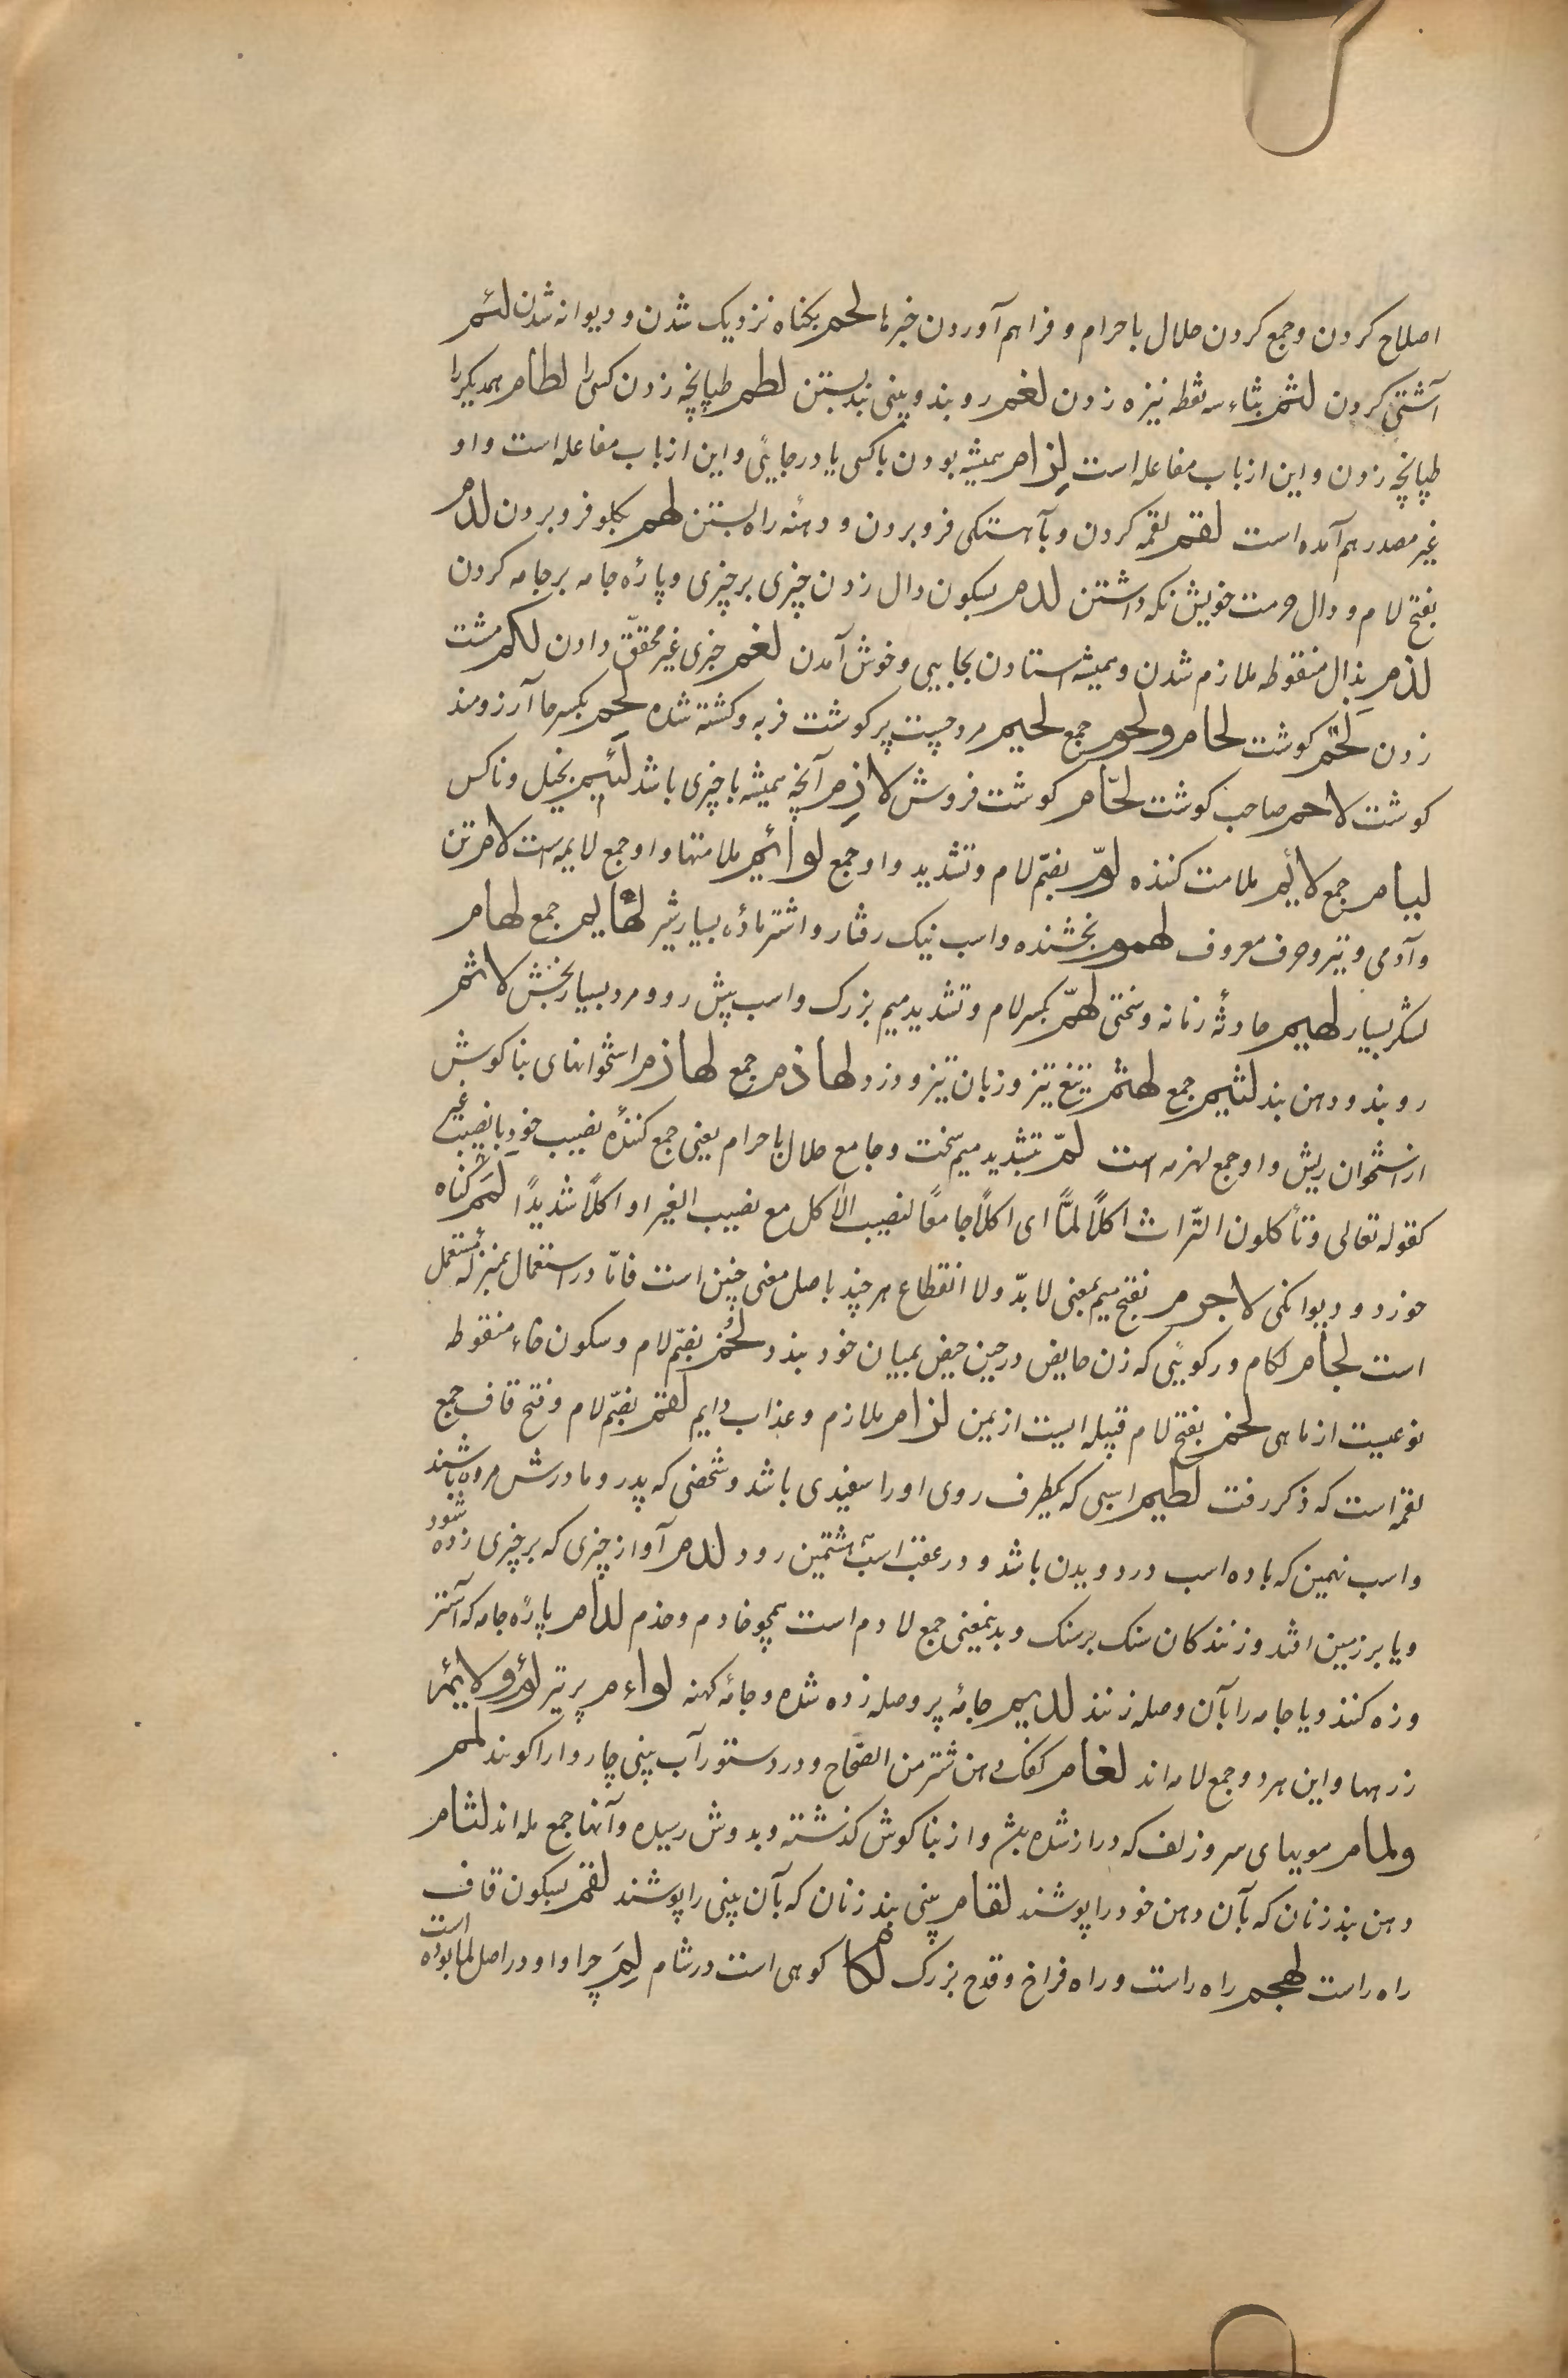 اصلاح کردن و جمع کردن حلال با حرام و فراهم آوردن خبرها لحم بکناه نزدیک شدن و دیوانه شدن لئم
آشتی کردن لثم بثاء سه نقطه نیزه زدن لغم روبند و بینی بند بستن لطم طپانچه زدن کسی را لطام همدیکر را
طپانچه زدن و این از باب مفاعله است لِزام همیشه بودن با کسی یا در جائی و این از باب مفاعله است و او
غیر مصدر هم آمده است لقم لقمه کردن و بآهستکی فرو بردن و دهنه راه بستن لهم بکلو فرو بردن لدم
بفتح لام و دال حرمت خویش نکه داشتن لدم بسکون دال زدن چیزی بر چیزی و پارهٔ جامه بر جامه کردن
لذم بذال منقوطه ملازم شدن و همیشه استادن بجایی و خوش آمدن لغم خبری غیر محقّق دادن لکم مشت
زدن لَحْم کوشت لحام و لحوم جمع لحیم مرد چست پر کوشت فربه و کشته شده لَحِم بکسر حا آرزومند
کوشت لاحم صاحب کوشت لحّام کوشت فروش لاذِم آنچه همیشه با چیزی باشد لَئیم بخیل و ناکس
لیام جمع لائم ملامت کننده لوّم بضمّ لام و تشدید واو جمع لوائم ملامتها و او جمع لایمه است لام تن
و آدمی و تیر و حرف معروف لهموم بخشنده و اسب نیک رفتار و اشتر مادهٔ بسیار شیر لهامیم جمع لهام
لشکر بسیار لهیم حادثهٔ زمانه و سختی لهمّ بکسر لام و تشدید میم بزرک و اسب پیش رو و مرد بسیار بخشش لاثم
روبند و دهن بند لثیم جمع لهذم تیغ تیز و زبان تیز و دزد لهاذم جمع لهازم استخوانهای بناکوش
از استخوان ریش و او جمع لهزمه است لمّ بتشدید میم سخت و جامع حلال با حرام یعنی جمع کنندهٔ نصیب خود با نصیب غیر
کقوله تعالی و تأکلون التّراث اکلاً لمّاً ای اکلاً جامعاً لنصیب الآکل مع نصیب الغیر او اکلاً شدیداً لَمَم کناه
خورد و دیوانکی لاجرم بفتح میم بمعنی لابدّ و لا انقطاع هر چند باصل معنی چنین است فامّا در استعمال بمنزله مستعمل
است لجام لکام و رکوئی که زن حایض در حین حیض بمیان خود بندد لخم بضمّ لام و سکون خاء منقوطه
نوعیست از ماهی لخم بفتح لام قبیله ایست از یمن لزام ملازم و عذاب دایم لقم بضمّ لام و فتح قاف جمع
لقمه است که ذکر رفت لطیم اسبی که یکطرف روی او را سفیدی باشد و شخصی که پدر و مادرش مرده باشند
و اسب نهمین که با ده اسب در دویدن باشد و در عقب اسب هشتمین رود لدم آواز چیزی که بر چیزی زده شود
و یا بر زمین افتد و زنندکان سنک بر سنک و بدینمعنی جمع لادم است همچو خادم و خدم لدام پارهٔ جامه که آستر
وزه کنند و یا جامه را بآن وصله زنند لدیم جامهٔ پر وصله زده شده و جامهٔ کهنه لواءم پر تیر لؤم و لائم
زرهها و این هر دو جمع لامه اند لغام کفک دهن شتر من الصّحاح و در دستور آب بینی چاروا را کویند لمم
و لمام مویهای سر و زلف که دراز شده باشد و از بناکوش کذشته و بدوش رسیده و آنها جمع لمه اند لثام
دهن بند زنان که بآن دهن خود را پوشند لقام بینی بند زنان که بآن بینی را پوشند لقم بسکون قاف
راه راست لهجم راه راست و راه فراخ و قدح بزرک لکام کوهی است در شام لِمَ چرا و او در اصل لما بوده است